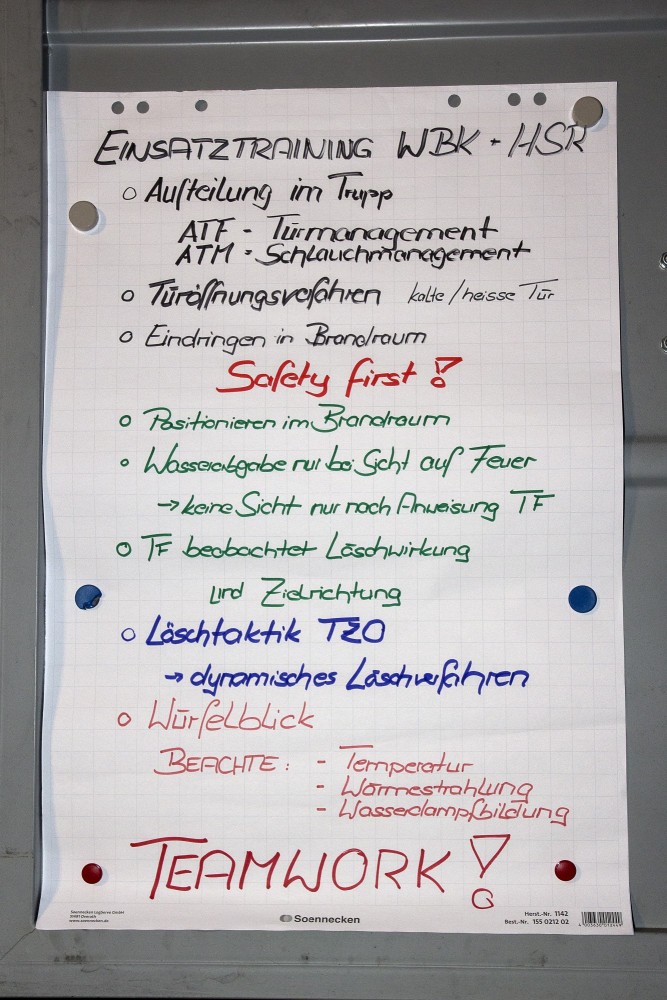 EINSATZTRAINING WBK + HSR
○ Aufteilung im Trupp
ATF - Türmanagement
ATM - Schlauchmanagement
○ Türöffnungsverfahren kalte/heisse Tür
○ Eindringen in Brandraum
Safety first!
○ Positionieren im Brandraum
○ Wasserabgabe nur bei Sicht auf Feuer
→ keine Sicht nur nach Anweisung TF
○ TF beobachtet Löschwirkung
und Zielrichtung
○ Löschtaktik TZO
→ dynamisches Löschverfahren
○ Würfelblick
BEACHTE: - Temperatur
- Wärmestrahlung
- Wasserdampfbildung
TEAMWORK!
Soennecken LogServe GmbH
51491 Overath
www.soennecken.de
Soennecken
Herst.-Nr. 1142
Best.-Nr. 155 0212 02